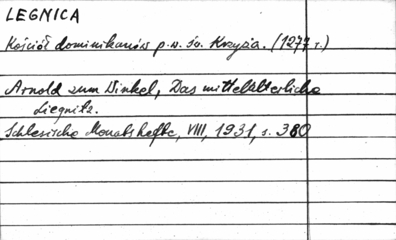 LEGNICA
Kościół dominikanów p.w. św. Krzyża. (1277 r.)
Arnold zum Winkel, Das mittelalterliche
Liegnitz.
Schlesische Monatshefte, VIII, 1931, s. 380